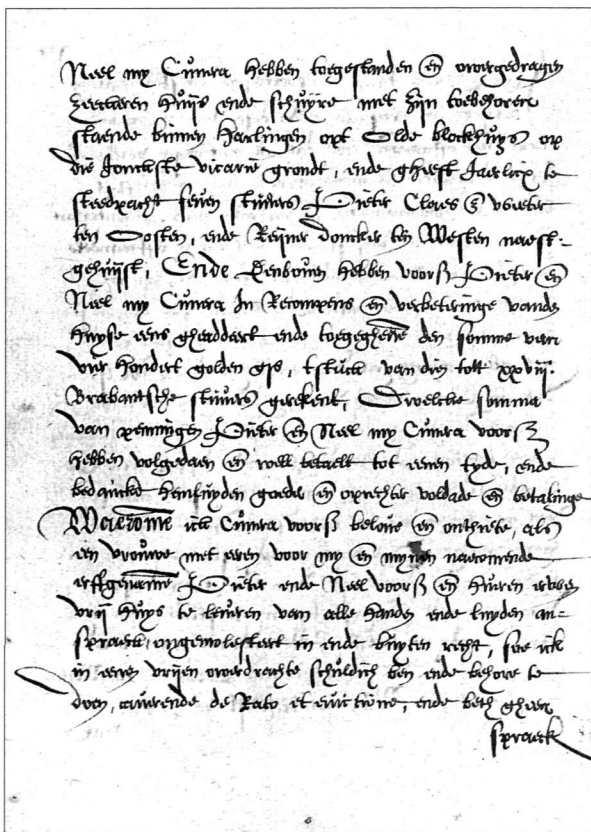 Neel my Cunera hebben toegestanden en overgedragen
zeeckeren huijs ende schuyre met zijn toebehoren
staende binnen Harlingen opt Olde blockhuijs op
die Joncste vicarie grondt, ende gheeft Jaerlicx te
steedpacht seven stuvers Pieter Claes
ten Oosten, ende Reijner Doncker ten Westen naest
gehuijst, Ende hebben voors Pieter en
Neel my Cunera In Recompens en verbeteringe vande
huyse eens ghe ende toegegheven den somme van
vier hondert golden gls, tstuck van dien tott xxviij
Brabantsche stuvers gerekent, Dwelcke somma
van penningen Pieter en Neel my Cunera voors
hebben voldaen en well betaelt tot eenen tyde, ende
bedancke henluyden goeder en oprechter voldade en betalinge
Waeromme ick Cunera voors belove en onthiete, als
een vrouwe met eeren voor my en mynen naecomende
erffgenamen Pieter ende Neel voors en huren erven
vrij huys te leveren van alle handen ende luyden an=
spraeck, ongemolesteert in ende buyten recht, soe ick
in eenen vrijen overdrachte schuldich ben ende behore te
doen, caverende de Rato et evictione, ende beth gheen
spraeck